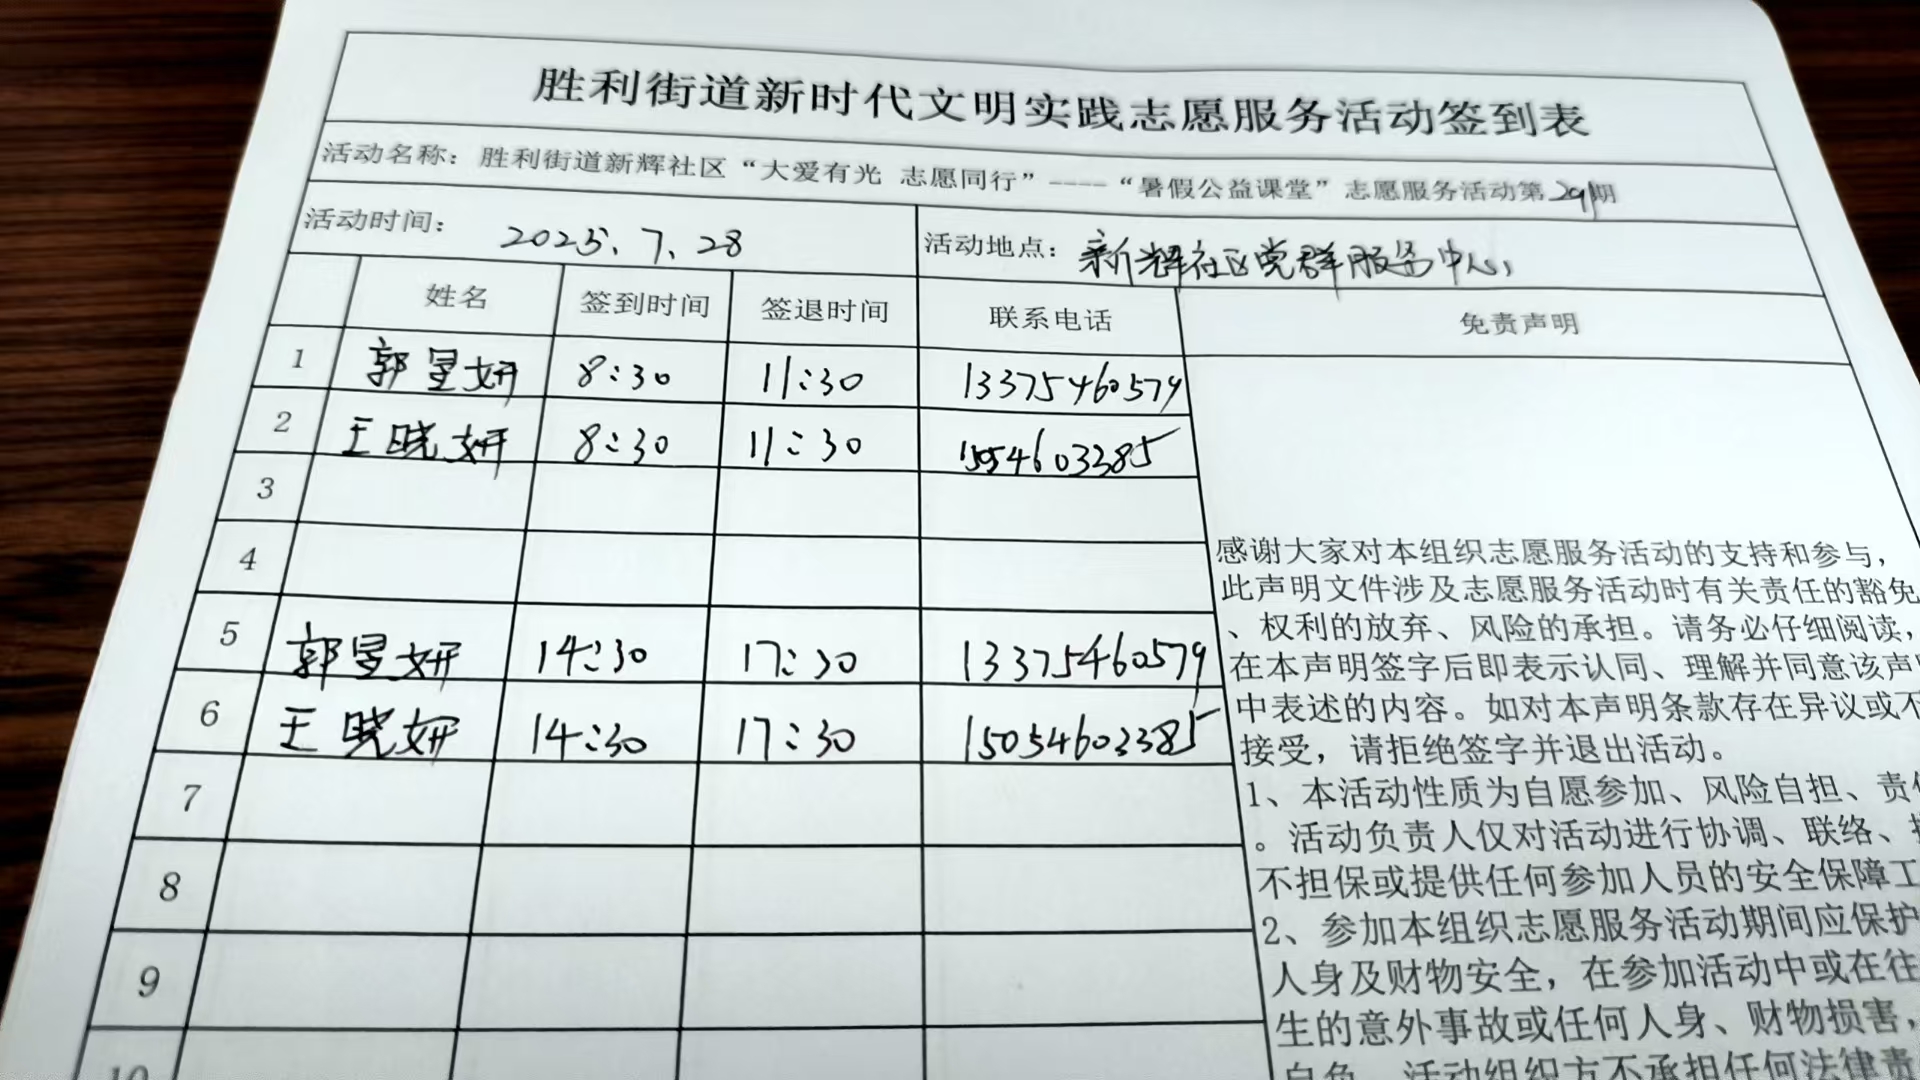 胜利街道新时代文明实践志愿服务活动签到表
活动名称：胜利街道新辉社区“大爱有光 志愿同行”----“暑假公益课堂”志愿服务活动第29期
活动时间： 2025.7.28 活动地点：新辉社区党群服务中心
姓名 签到时间 签退时间 联系电话 免责声明
1 郭昱妍 8:30 11:30 13375460579
2 王晓妍 8:30 11:30
3
4
5 郭昱妍 14:30 17:30 13375460579
6 王晓妍 14:30 17:30 15054603385
7
8
9
10
感谢大家对本组织志愿服务活动的支持和参与，
此声明文件涉及志愿服务活动时有关责任的豁免
、权利的放弃、风险的承担。请务必仔细阅读，
在本声明签字后即表示认同、理解并同意该声明
中表述的内容。如对本声明条款存在异议或不
接受，请拒绝签字并退出活动。
1、本活动性质为自愿参加、风险自担、责任
。活动负责人仅对活动进行协调、联络、
不担保或提供任何参加人员的安全保障工
2、参加本组织志愿服务活动期间应保护
人身及财物安全，在参加活动中或在往
生的意外事故或任何人身、财物损害，
自负，活动组织方不承担任何法律责